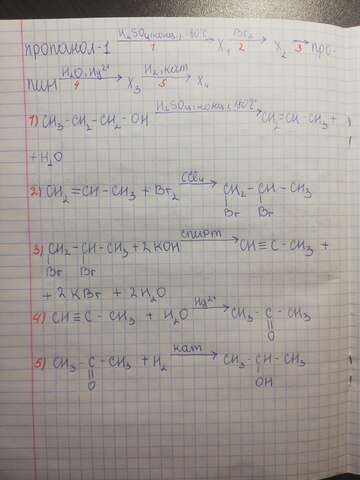 пропанол-1 H₂SO₄конц., 180°C 1 → X₁ Br₂ 2 → X₂ → 3 про-
пин H₂O, Hg²⁺ 4 → X₃ H₂, кат 5 → X₄
1) CH₃-CH₂-CH₂-OH H₂SO₄конц., 180°C → CH₂=CH-CH₃ +
+ H₂O
2) CH₂=CH-CH₃ + Br₂ CCl₄ → CH₂-CH-CH₃
Br Br
3) CH₂-CH-CH₃ + 2KOH спирт → CH≡C-CH₃ +
Br Br
+ 2KBr + 2H₂O
4) CH≡C-CH₃ + H₂O Hg²⁺ → CH₃-C-CH₃
O
5) CH₃-C-CH₃ + H₂ кат → CH₃-CH-CH₃
O OH